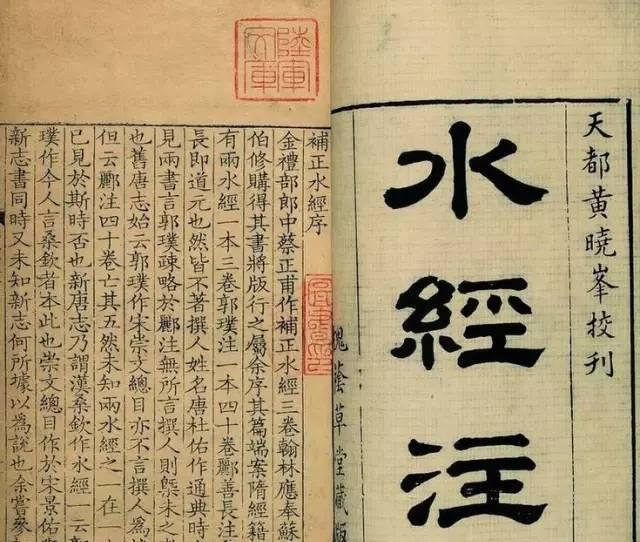 天都黃曉峯挍刊
水經注
槐蔭草堂藏版
陸軍文庫
補正水經序
金禮部郎中蔡正甫作補正水經三卷翰林應奉蘇
伯修購得其書將版行之屬余序其篇端案隋經籍
有兩水經一本三卷郭璞注一本四十卷酈善長注
長即道元也然皆不著撰人姓名唐杜佑作通典時
見兩書言郭璞疎略於酈注無所言撰人則槩未之
也舊唐志始云郭璞作宋崇文總目亦不言撰人爲
但云酈注四十卷亡其五然未知兩水經之一在
已見於斯時否也新唐志乃謂漢桑欽作水經一云郭
璞作今人言桑欽者本此也崇文總目作於宋景佑
新志書同時又未知新志何所據以爲說也余嘗參